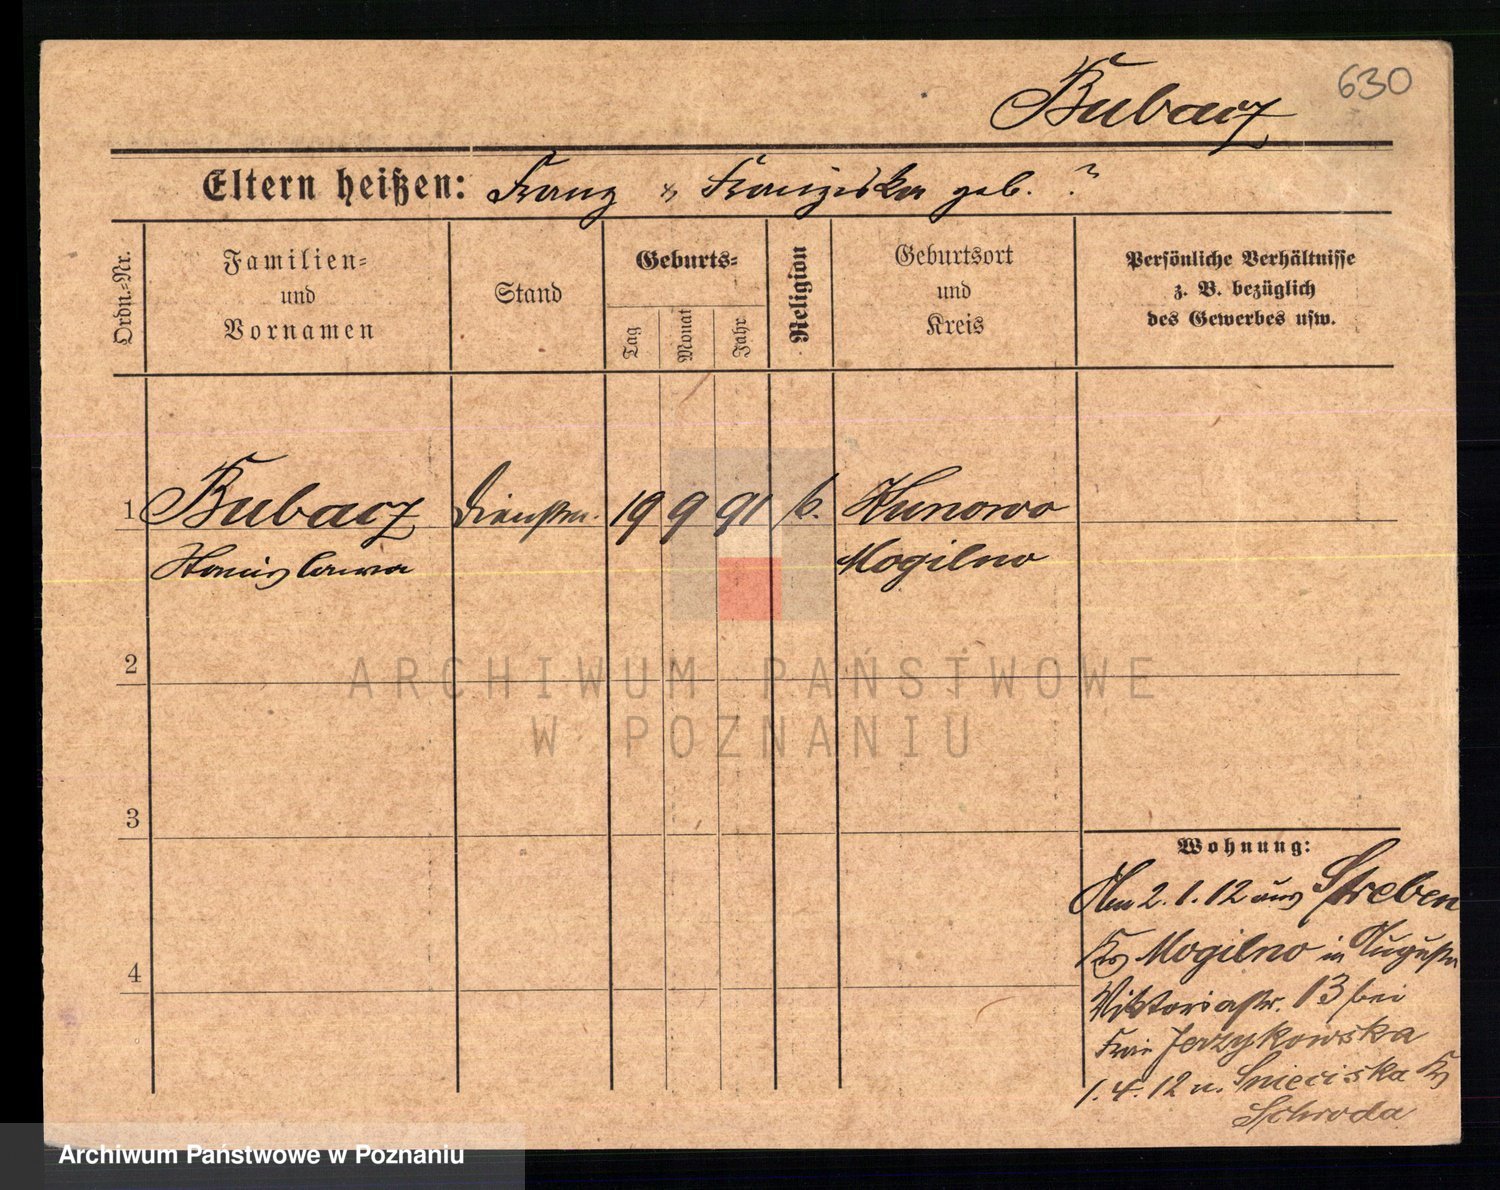 630
Bubacz
Eltern heißen: Franz & Franziska geb. ?
Ordn.-Nr.
Familien-
und
Vornamen
Stand
Geburts-
Tag
Monat
Jahr
Religion
Geburtsort
und
Kreis
Persönliche Verhältnisse
z. B. bezüglich
des Gewerbes usw.
1 Bubacz Dienstm. 19 9 91 k. Kunowo
Stanislawa Mogilno
2
ARCHIWUM PAŃSTWOWE
W POZNANIU
3
Wohnung:
Am 2.1.12 aus Streben
Krs Mogilno in Augusta
4
Viktoriastr. 13 bei
Frau Jerzykowska
1.4.12 n. Snieciska Krs
Schroda
Archiwum Państwowe w Poznaniu